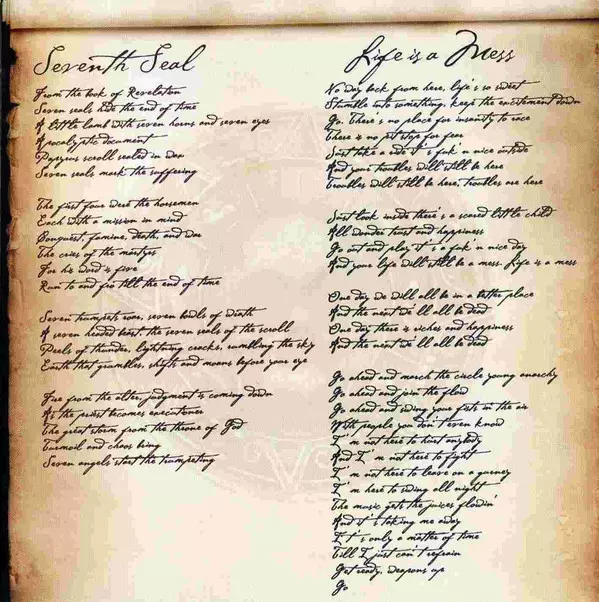 Seventh Seal
From the book of Revelation
Seven seals hide the end of time
A little lamb with seven horns and seven eyes
Apocalyptic document
Papyrus scroll sealed in wax
Seven seals mark the suffering
The first four were the horsemen
Each with a mission in mind
Conquest, famine, death, and war
The cries of the martyrs
For his word is five
Run to and fro till the end of time
Seven trumpets roar, seven bowls of wrath
A seven headed beast the seven seals of the scroll
Peels of thunder, lightning cracks, rumbling the sky
Earth that grumbles, shifts and moans before your eye
Fire from the alter, judgment is coming down
As the priest becomes executioner
The great storm from the throne of God
Turmoil and chaos bring
Seven angels start the trumpeting
Life is a Mess
No way back from here, life's so sweet
Stumble into something, keep the excitement down
Go. There's no place for insanity to race
There is no pit stop for fear
Just take a ride it's fuk'n nice outside
And your troubles will still be here
Troubles will still be here, troubles are here
Just look inside there's a scared little child
All wonder trust and happiness
Go out and play it's a fuk'n nice day
And your life will still be a mess. Life is a mess
One day we will all be in a better place
And the next we'll all be dead
One day there is riches and happiness
And the next we'll all be dead
Go ahead and march the circle young anarchy
Go ahead and join the flow
Go ahead and swing your fists in the air
With people you don't even know
I'm not here to hurt anybody
And I'm not here to fight
I'm not here to leave on a gurney
I'm here to swing all night
The music gets the juices flowin'
And it's taking me away
It's only a matter of time
Till I just can't refrain
Get ready, weapons up
Go